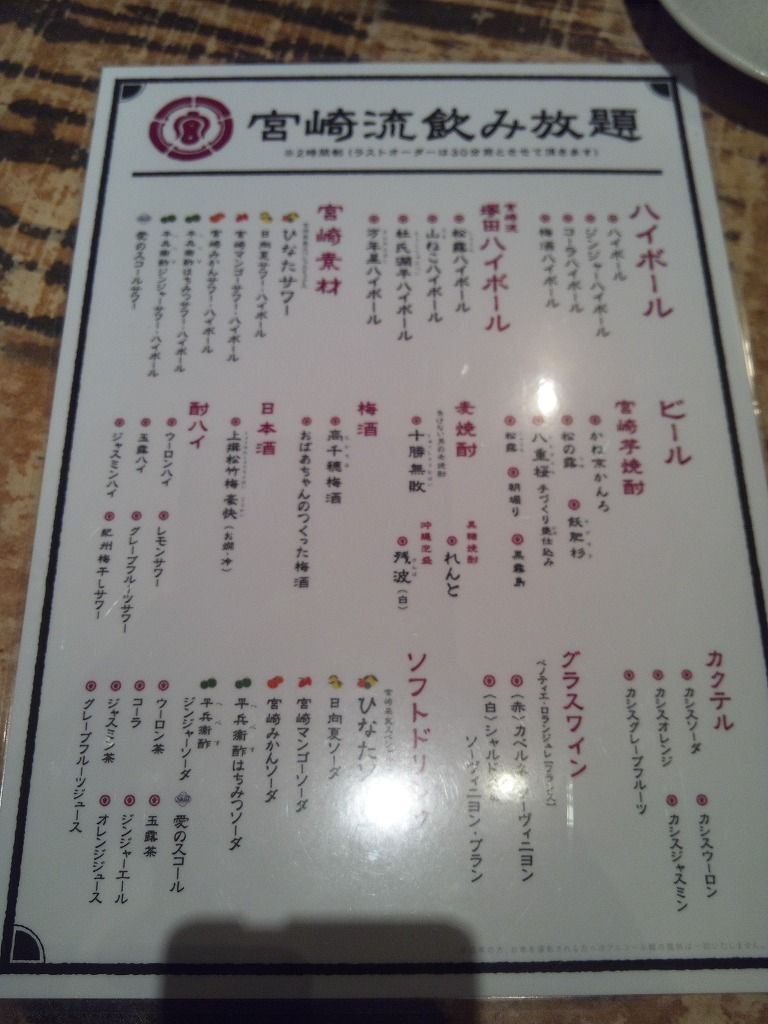 宮崎流飲み放題
※2時間制(ラストオーダーは30分前とさせて頂きます)
ハイボール
ハイボール
ジンジャーハイボール
コーラハイボール
梅酒ハイボール
宮崎流
塚田ハイボール
松露ハイボール
山ねこハイボール
杜氏潤平ハイボール
万年星ハイボール
宮崎素材
ひなたサワー
日向夏サワー・ハイボール
宮崎マンゴーサワー・ハイボール
宮崎みかんサワー・ハイボール
平兵衛酢はちみつサワー・ハイボール
平兵衛酢ジンジャーサワー・ハイボール
愛のスコールサワー
ビール
宮崎芋焼酎
かね京かんろ
松の露
飫肥杉
八重桜 手づくり甕仕込み
松露
朝堀り
黒霧島
麦焼酎
十勝無敗
黒糖焼酎
れんと
沖縄泡盛
残波(白)
梅酒
高千穂梅酒
おばあちゃんのつくった梅酒
日本酒
上撰松竹梅 豪快(お燗・冷)
酎ハイ
ウーロンハイ
レモンサワー
玉露ハイ
グレープフルーツサワー
ジャスミンハイ
紀州梅干しサワー
カクテル
カシスソーダ
カシスウーロン
カシスオレンジ
カシスジャスミン
カシスグレープフルーツ
グラスワイン
(赤)カベルネ・ソーヴィニヨン
(白)シャルドネ
ソーヴィニヨン・ブラン
ソフトドリンク
ひなたソ
日向夏ソーダ
宮崎マンゴーソーダ
宮崎みかんソーダ
平兵衛酢はちみつソーダ
平兵衛酢
ジンジャーソーダ
愛のスコール
ウーロン茶
玉露茶
コーラ
ジンジャーエール
ジャスミン茶
オレンジジュース
グレープフルーツジュース